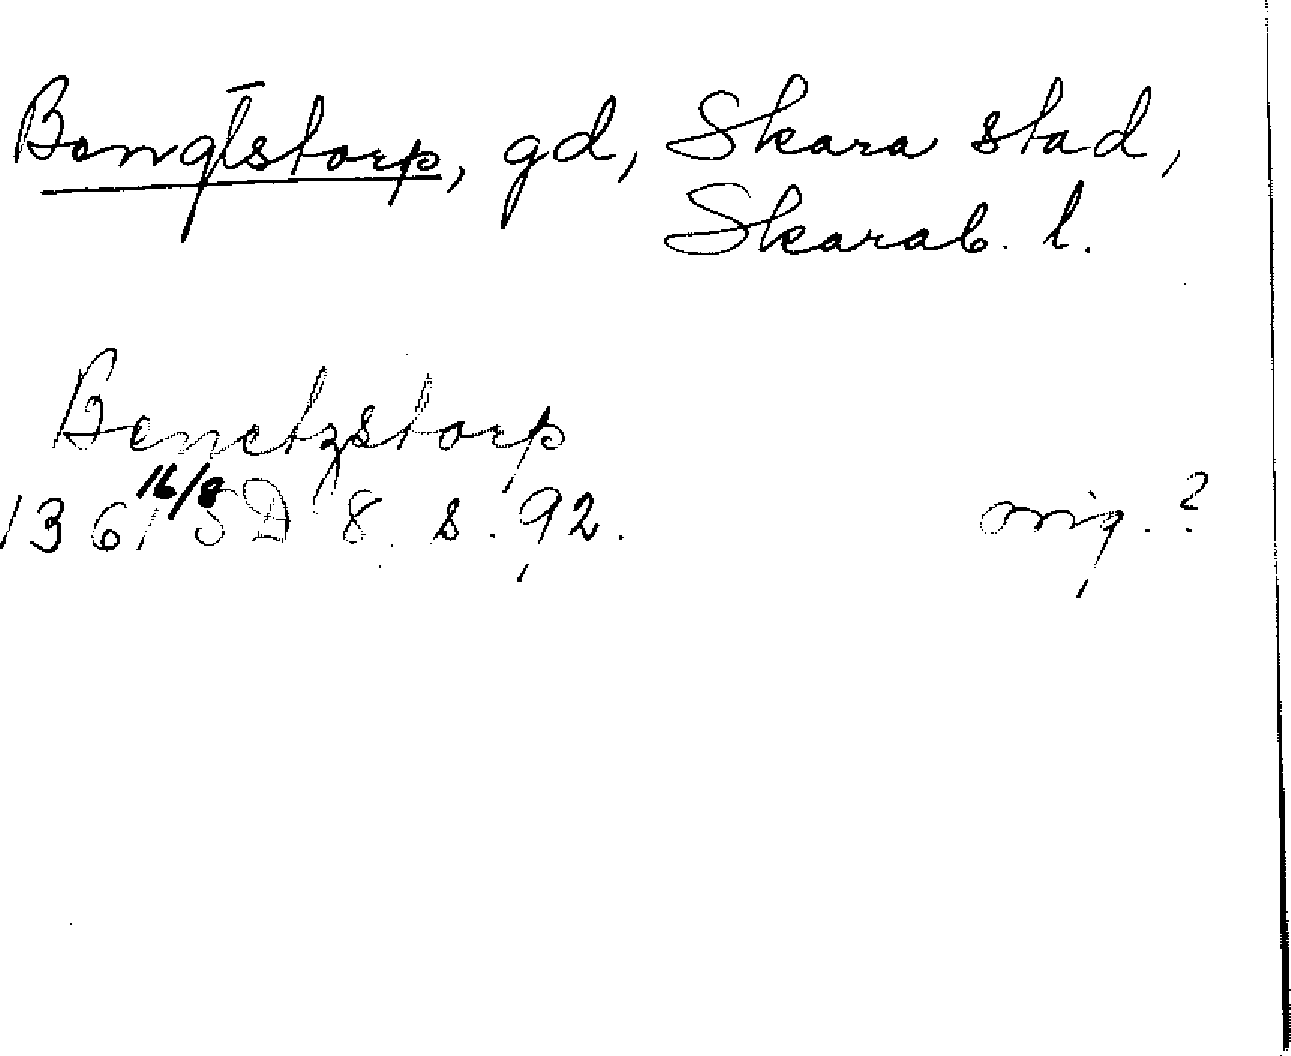 Bengtstorp, gd, Skara stad,
Skarab. l.
Benctzstorp
1361 16/8 SD 8. s. 92. orig. ?